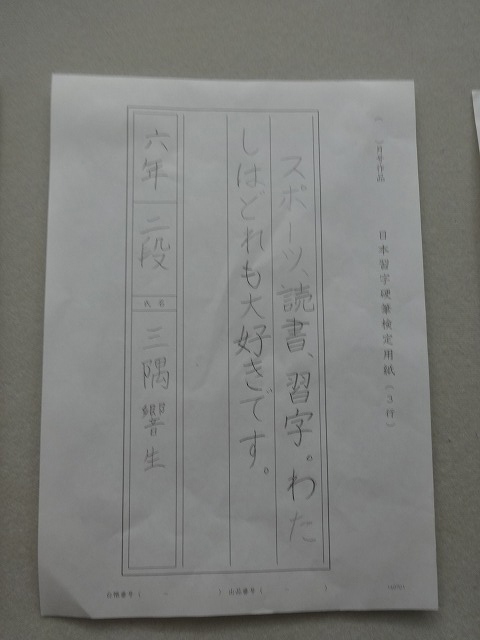 日本習字硬筆検定用紙(3行)
スポーツ、読書、習字。わた
しは、どれも大好きです。
六年 二段 氏名 三隅響生